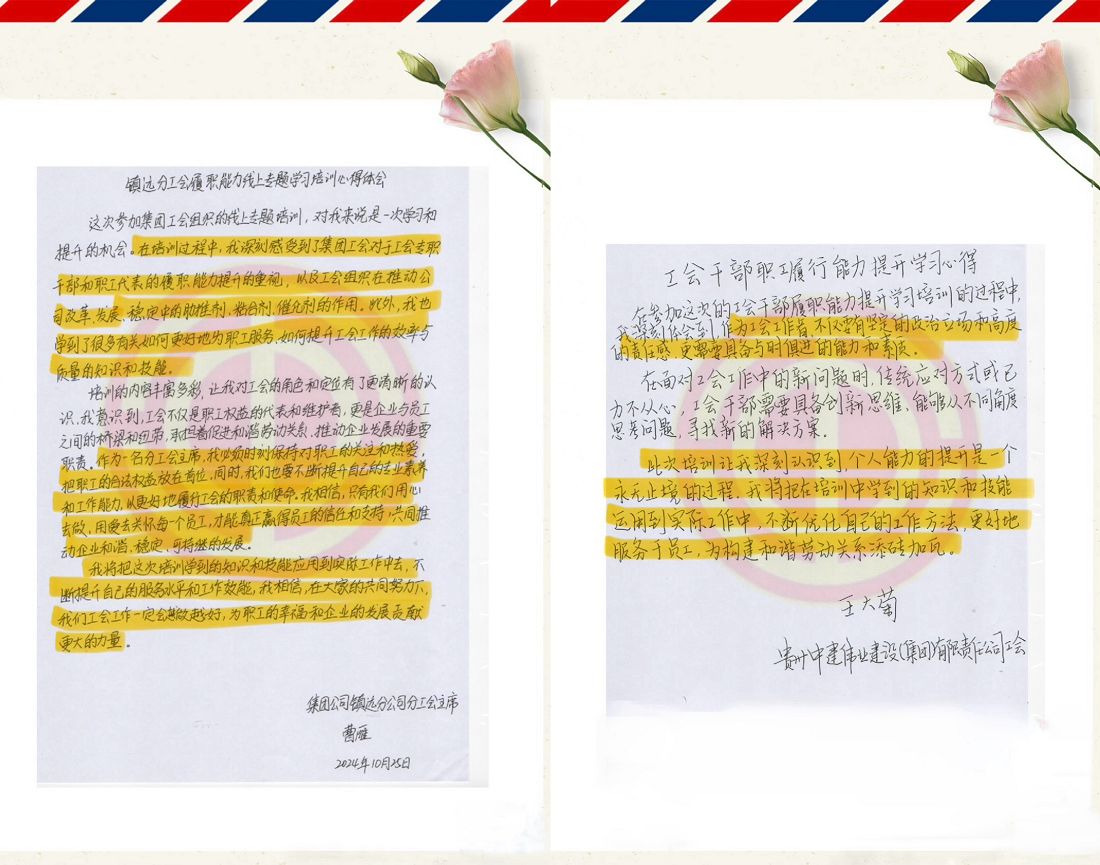 镇远分工会履职能力线上专题学习培训心得体会
这次参加集团工会组织的线上专题培训，对我来说是一次学习和
提升的机会。在培训过程中，我深刻感受到了集团工会对于工会专职
干部和职工代表的履职能力提升的重视，以及工会组织在推动公
司改革、发展、稳定中的助推剂、粘合剂、催化剂的作用。此外，我也
学到了很多有关如何更好地为职工服务、如何提升工会工作的效率与
质量的知识和技能。
培训的内容丰富多彩，让我对工会的角色和定位有了更清晰的认
识，我意识到，工会不仅是职工权益的代表和维护者，更是企业与员工
之间的桥梁和纽带，承担着促进和谐劳动关系、推动企业发展的重要
职责。作为一名分工会主席，我必须时刻保持对职工的关注和热爱，
把职工的合法权益放在首位，同时，我们也要不断提升自己的专业素养
和工作能力，以更好地履行工会的职责和使命。我相信，只有我们用心
去做，用爱去关怀每个员工，才能真正赢得员工的信任和支持，共同推
动企业和谐、稳定、可持继的发展。
我将把这次培训学到的知识和技能应用到实际工作中去，不
断提升自己的服务水平和工作效能，我相信，在大家的共同努力下，
我们工会工作一定会越做越好，为职工的幸福和企业的发展贡献
更大的力量。
集团公司镇远分公司分工会主席
曹雁
2024年10月25日
工会干部职工履行能力提升学习心得
在参加这次的工会干部履职能力提升学习培训的过程中，
我深刻体会到，作为工会工作者，不仅要有坚定的政治立场和高度
的责任感，更需要具备与时俱进的能力和素质。
在面对工会工作中的新问题时，传统应对方式或已
力不从心，工会干部需要具备创新思维，能够从不同角度
思考问题，寻找新的解决方案。
此次培训让我深刻认识到，个人能力的提升是一个
永无止境的过程，我将把在培训中学到的知识和技能
运用到实际工作中，不断优化自己的工作方法，更好地
服务于员工，为构建和谐劳动关系添砖加瓦。
王大菊
贵州中建伟业建设(集团)有限责任公司工会